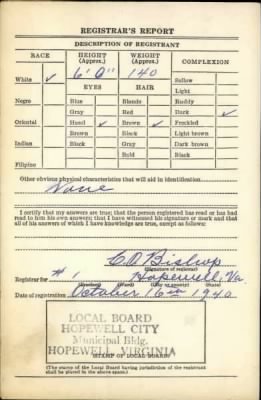 REGISTRAR'S REPORT
DESCRIPTION OF REGISTRANT
RACE HEIGHT (Approx.) WEIGHT (Approx.) COMPLEXION
White ✓ 6' 0" 140 Sallow
EYES HAIR Light
Negro Blue Blonde Ruddy
Gray Red Dark ✓
Oriental Hazel ✓ Brown ✓ Freckled
Brown Black Light brown
Indian Black Gray Dark brown
Bald Black
Filipino
Other obvious physical characteristics that will aid in identification
None
I certify that my answers are true; that the person registered has read or has had
read to him his own answers; that I have witnessed his signature or mark and that
all of his answers of which I have knowledge are true, except as follows:
C D Bishop
(Signature of registrar)
Registrar for # 1 Hopewell, Va.
(Precinct) (Ward) (City or county) (State)
Date of registration October 16th 1940
LOCAL BOARD
HOPEWELL CITY
Municipal Bldg.
HOPEWELL, VIRGINIA
(STAMP OF LOCAL BOARD)
(The stamp of the Local Board having jurisdiction of the registrant
shall be placed in the above space.)